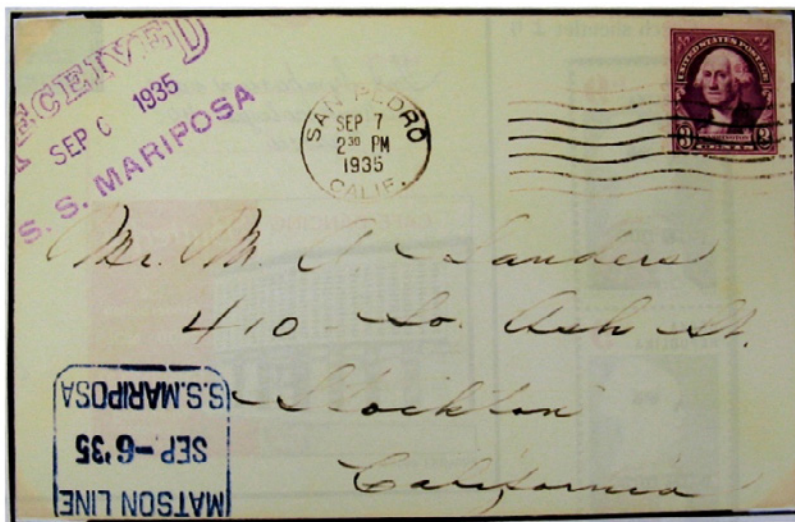 RECEIVED
SEP 6 1935
S. S. MARIPOSA
SAN PEDRO
SEP 7
2 30 PM
1935
CALIF.
UNITED STATES POSTAGE
3 3
Mr. M. A. Sanders
410 - So. Ash St.
Stockton
California
MATSON LINE
SEP -6'35
S.S. MARIPOSA